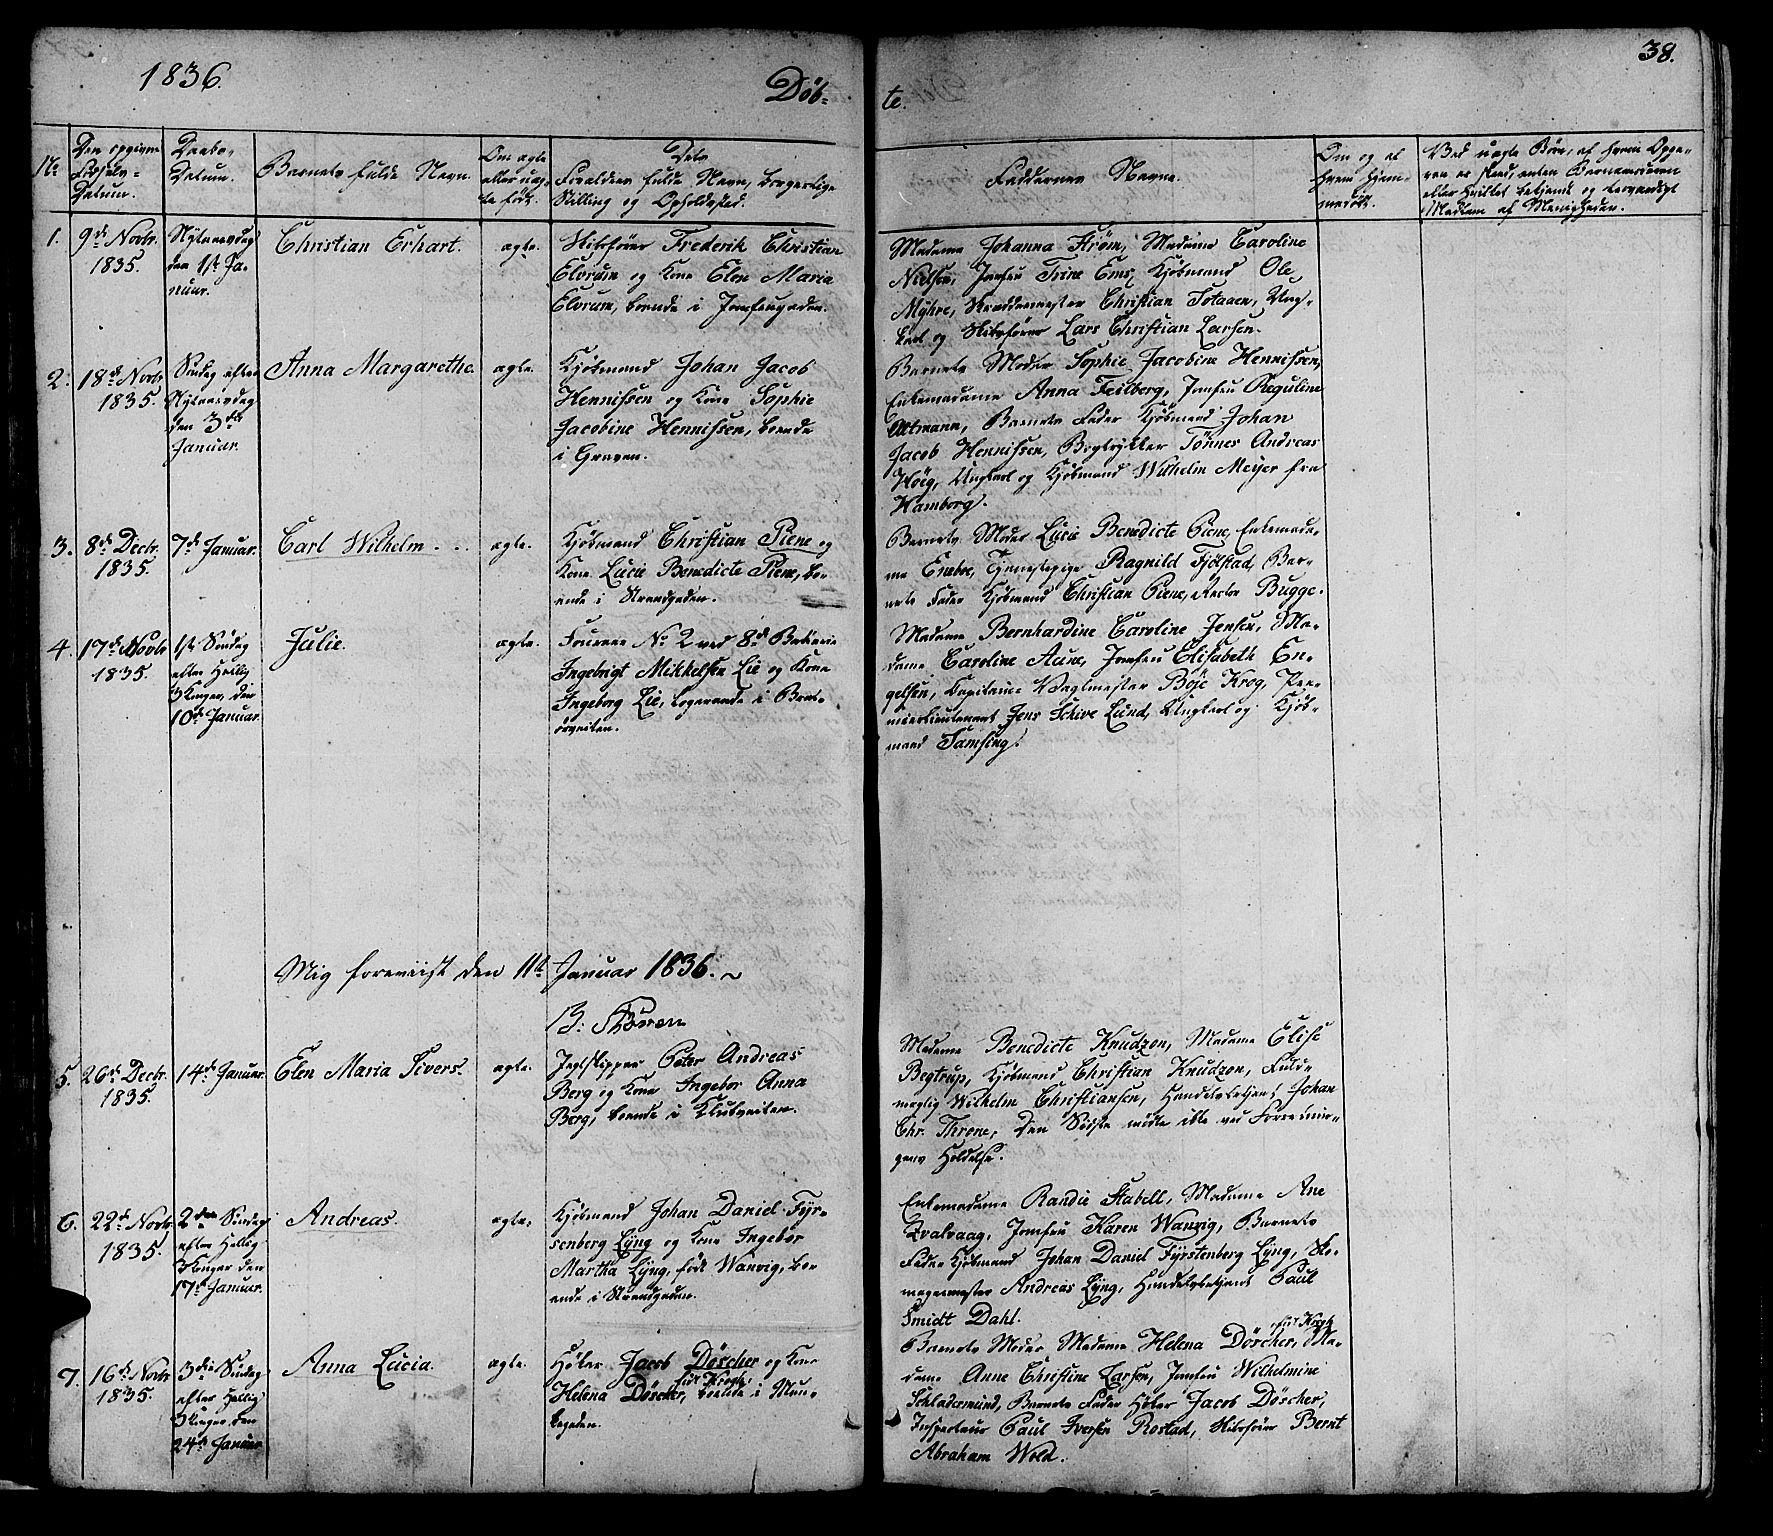 1836.
Döb-
te.
38.
No
Den opgivne
Födsels-
Datum.
Daabs-
Datum.
Barnets fulde Navn.
Om ægte
eller uæg-
te födt.
Dets
Forældres fulde Navn, borgerlige
Stilling og Opholdssted.
Faddernes Navne.
Om og af
hvem hjem-
medöbt.
Ved uægte Börn, af hvem Opga-
ven er skeed, enten Barnemoderen
eller hvilket bekjendt og troværdigt
Medlem af Menigheden.
1.
9de Novbr.
1835.
Nytaarsdag
den 1ste Ja-
nuar.
Christian Erhart.
ægte.
Skibsförer Frederik Christian
Elvrum og Kone Elen Maria
Elvrum, boende i Jomfrugaden.
Madame Johanna Ström, Madame Caroline
Nielsen, Jomfru Trine Ems, Kjöbmand Ole
Myhre, Skræddermester Christian Sotaaen, Ung-
karl og Skibsförer Lars Christian Larsen.
2.
18de Novbr
1835.
Söndag efter
Nytaarsdag
den 3die
Januar.
Anna Margarethe.
ægte.
Kjöbmand Johan Jacob
Hennissen og Kone Sophie
Jacobine Hennissen, boende
i Graven.
Barnets Moder Sophie Jacobine Hennissen,
Enkemadame Anna Feilberg, Jomfru Reguline
Altmann, Barnets Fader Kjöbmand Johan
Jacob Hennissen, Bogtrykker Tönnes Andreas
Höeg, Ungkarl og Kjöbmand Wilhelm Meijer fra
Hamborg.
3.
8de Decbr.
1835.
7de Januar.
Carl Wilhelm.
ægte.
Kjöbmand Christian Piene og
Kone Lucie Benedicte Piene, bo-
ende i Strandgaden.
Barnets Moder Lucie Benedicte Piene, Enkemada-
me Eneboe, Tjenestepige Ragnild Fjölstad, Bar-
nets Fader Kjöbmand Christian Piene, Rector Bugge.
4.
17de Novbr
1835.
1ste Söndag
efter Hellig
3 Konger, den
10de Januar.
Julie.
ægte.
Foureer No 2 ved 8de Batterie
Ingebrigt Mikkelsen Lie og Kone
Ingeborg Lie, logerende i Brat-
örveiten.
Madame Bernhardine Caroline Jensen, Ma-
dame Caroline Aune, Jomfru Elisabeth En-
gelsen, Capitaine Vagtmester Böje Krog, Pre-
mierlieutenant Jens Schive Lund, Ungkarl og Kjöb-
mand Samsing.
Mig foreviist den 11te Januar 1836.
5.
26de Decbr.
1835.
14de Januar.
Elen Maria Sivers.
ægte.
Jagtskipper Peter Andreas
Berg og Kone Ingebor Anna
Berg, boende i Klubveiten.
Madame Benedicte Knudzon, Madame Elise
Begtrup, Kjöbmand Christian Knudzon, Fuld-
mægtig Wilhelm Christiansen, Handelsbetjent Johan
Chr. Throne, Den Sidste mödte ikke ved Forretnin-
gens Holdelse.
6.
22de Novbr.
1835.
2den Söndag
efter Hellig
3 Konger den
17de Januar.
Andreas.
ægte.
Kjöbmand Johan Daniel Fyr-
senberg Lyng og Kone Ingebor
Martha Lyng, födt Wanvig, bo-
ende i Strandgaden.
Enkemadame Randie Stabell, Madame Ane
Qvalvaag, Jomfru Karen Wanvig, Barnets
Fader Kjöbmand Johan Daniel Fyrstenberg Lyng, Sko-
magermester Andreas Lyng, Handelsbetjent Paul
Smidt Dahl.
7.
16de Novbr
1835.
3die Söndag
efter Hellig
3 Konger, den
24de Januar
Anna Lucia.
ægte.
Höker Jacob Döscher og Kone
födt Krogh,
Helena Döscher, boende i Mun-
kegaden.
födt Krogh
Barnets Moder Madame Helena Döscher, Ma-
dame Anne Christine Larsen, Jomfru Wilhelmine
Schladermund, Barnets Fader Höker Jacob Döscher,
Inspecteur Paul Iversen Rostad, Skibsförer Bernt
Abraham Wold.